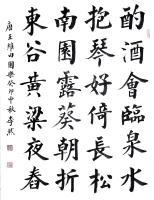 酌酒會臨泉水
抱琴好倚長松
南園露葵朝折
東谷黃粱夜舂
唐王維田園樂癸卯中秋李